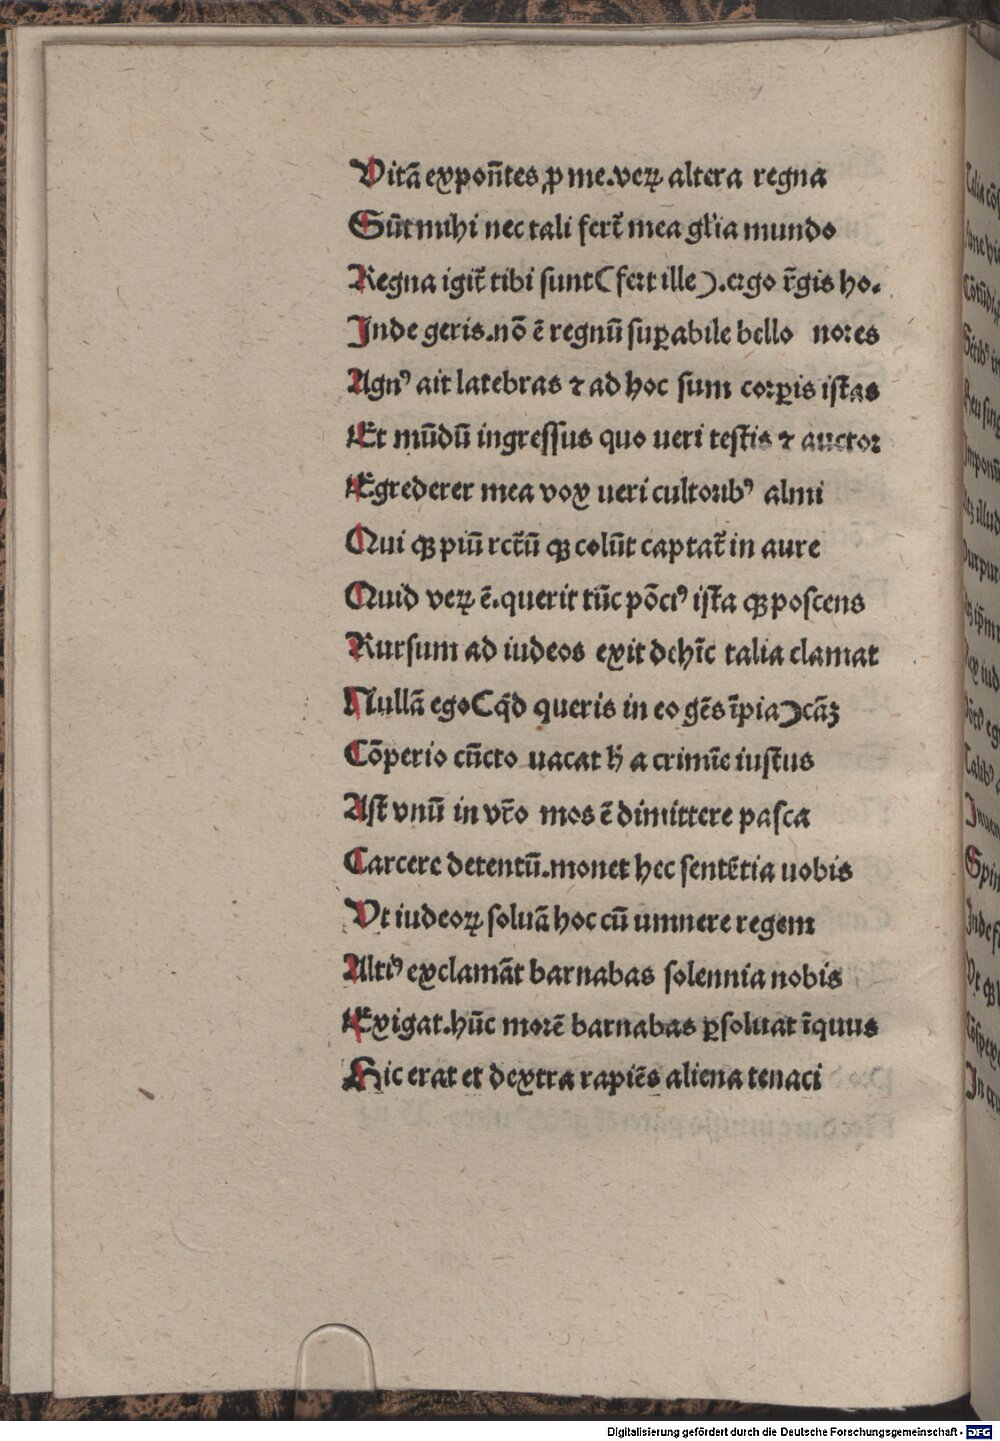 Vitā expon̄tes ꝓ me.veꝝ altera regna
Sūt mihi nec tali fert̄ mea gl'ia mundo
Regna igit̄ tibi sunt (fert ille).ergo r̄gis ho.
Inde geris.nō ē regnū suꝑabile bello nores
Agnꝰ ait latebras ⁊ ad hoc sum corꝑis istas
Et mūdū ingressus quo ueri testis ⁊ auctor
Egrederer mea vox ueri cultoribꝰ almi
Qui ꝙ piū rct̄ū ꝙ colūt captat̄ in aure
Quid veꝝ ē.querit tūc pōciꝰ ista ꝙ poscens
Rursum ad iudeos exit dehīc talia clamat
Nullā ego (qd̄ queris in eo gēs īpia) cāꝫ
Cōperio cūcto uacat h̄ a crimīe iustus
Ast vnū in vr̄o mos ē dimittere pasca
Carcere detentū.monet hec sentētia uobis
Vt iudeoꝝ soluā hoc cū umnere regem
Altiꝰ exclamāt barnabas solennia nobis
Exigat.hūc morē barnabas ꝑsoluat īquus
Hic erat et dextra rapiēs aliena tenaci
Digitalisierung gefördert durch die Deutsche Forschungsgemeinschaft - DFG